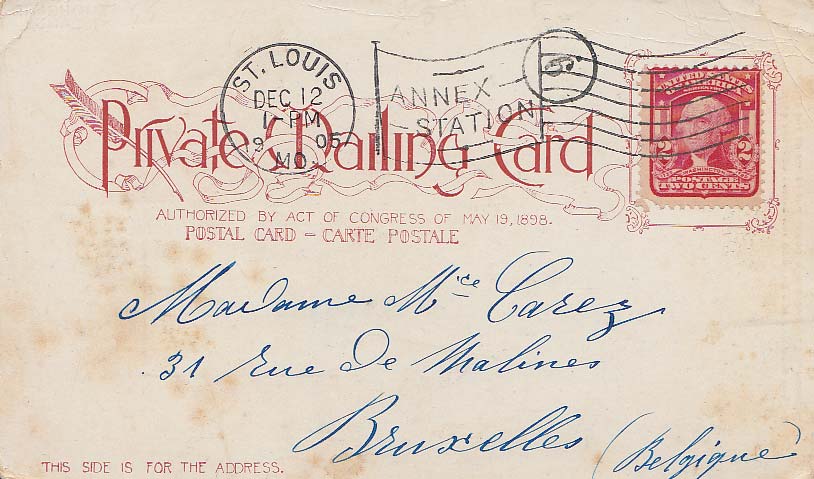 ST. LOUIS
DEC 12
1-PM
19 05
MO.
ANNEX
STATION
Private Mailing Card
UNITED STATES OF AMERICA
WASHINGTON
2 2
POSTAGE
TWO CENTS
AUTHORIZED BY ACT OF CONGRESS OF MAY 19, 1898.
POSTAL CARD – CARTE POSTALE
Madame Mce Carez
31 rue de Malines
Bruxelles (Belgique)
THIS SIDE IS FOR THE ADDRESS.